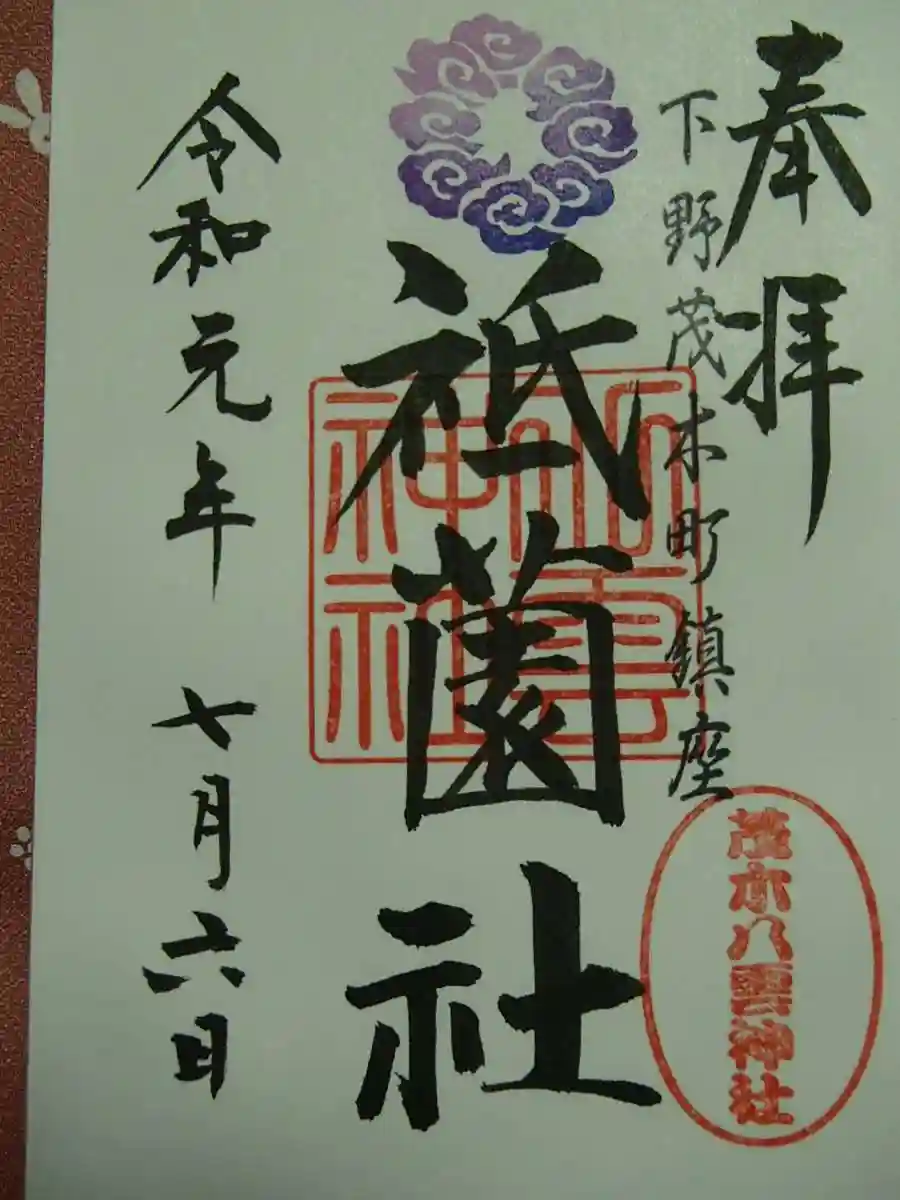 奉拝
下野茂木町鎮座
茂木八雲神社
祇園社
八雲
神社
令和元年 七月六日